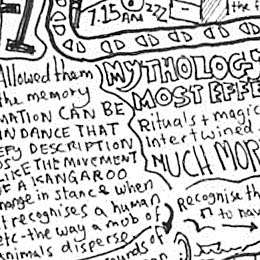 7.15 AM ZZZ
the f
Allowed them
the memory
MATION CAN BE
IN DANCE THAT
ERY DESCRIPTION
LIKE THE MOVEMENT
OF A KANGAROO
hange in stance when
t recognises a human
etc - the way a mob of
animals disperse
ounds of
MYTHOLOG-Y
MOST EFFE
Rituals + magic
intertwined.
MUCH MOR
Recognise th
to nav